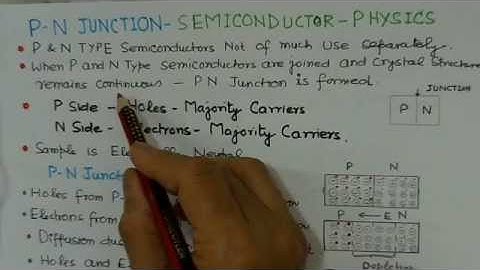 P-N JUNCTION-SEMICONDUCTOR-PHYSICS
• P & N TYPE Semiconductors Not of much Use separately.
• When P and N Type Semiconductors are joined and Crystal Structure
remains Continuous - PN Junction is formed.
JUNCTION
P N
• P Side - Holes - Majority Carriers
N Side - Electrons - Majority Carriers.
• Sample is Neutral
P-N
P N
• Holes from P-
• Electrons from
P ← E N
• Diffusion
• Holes and
Depletion